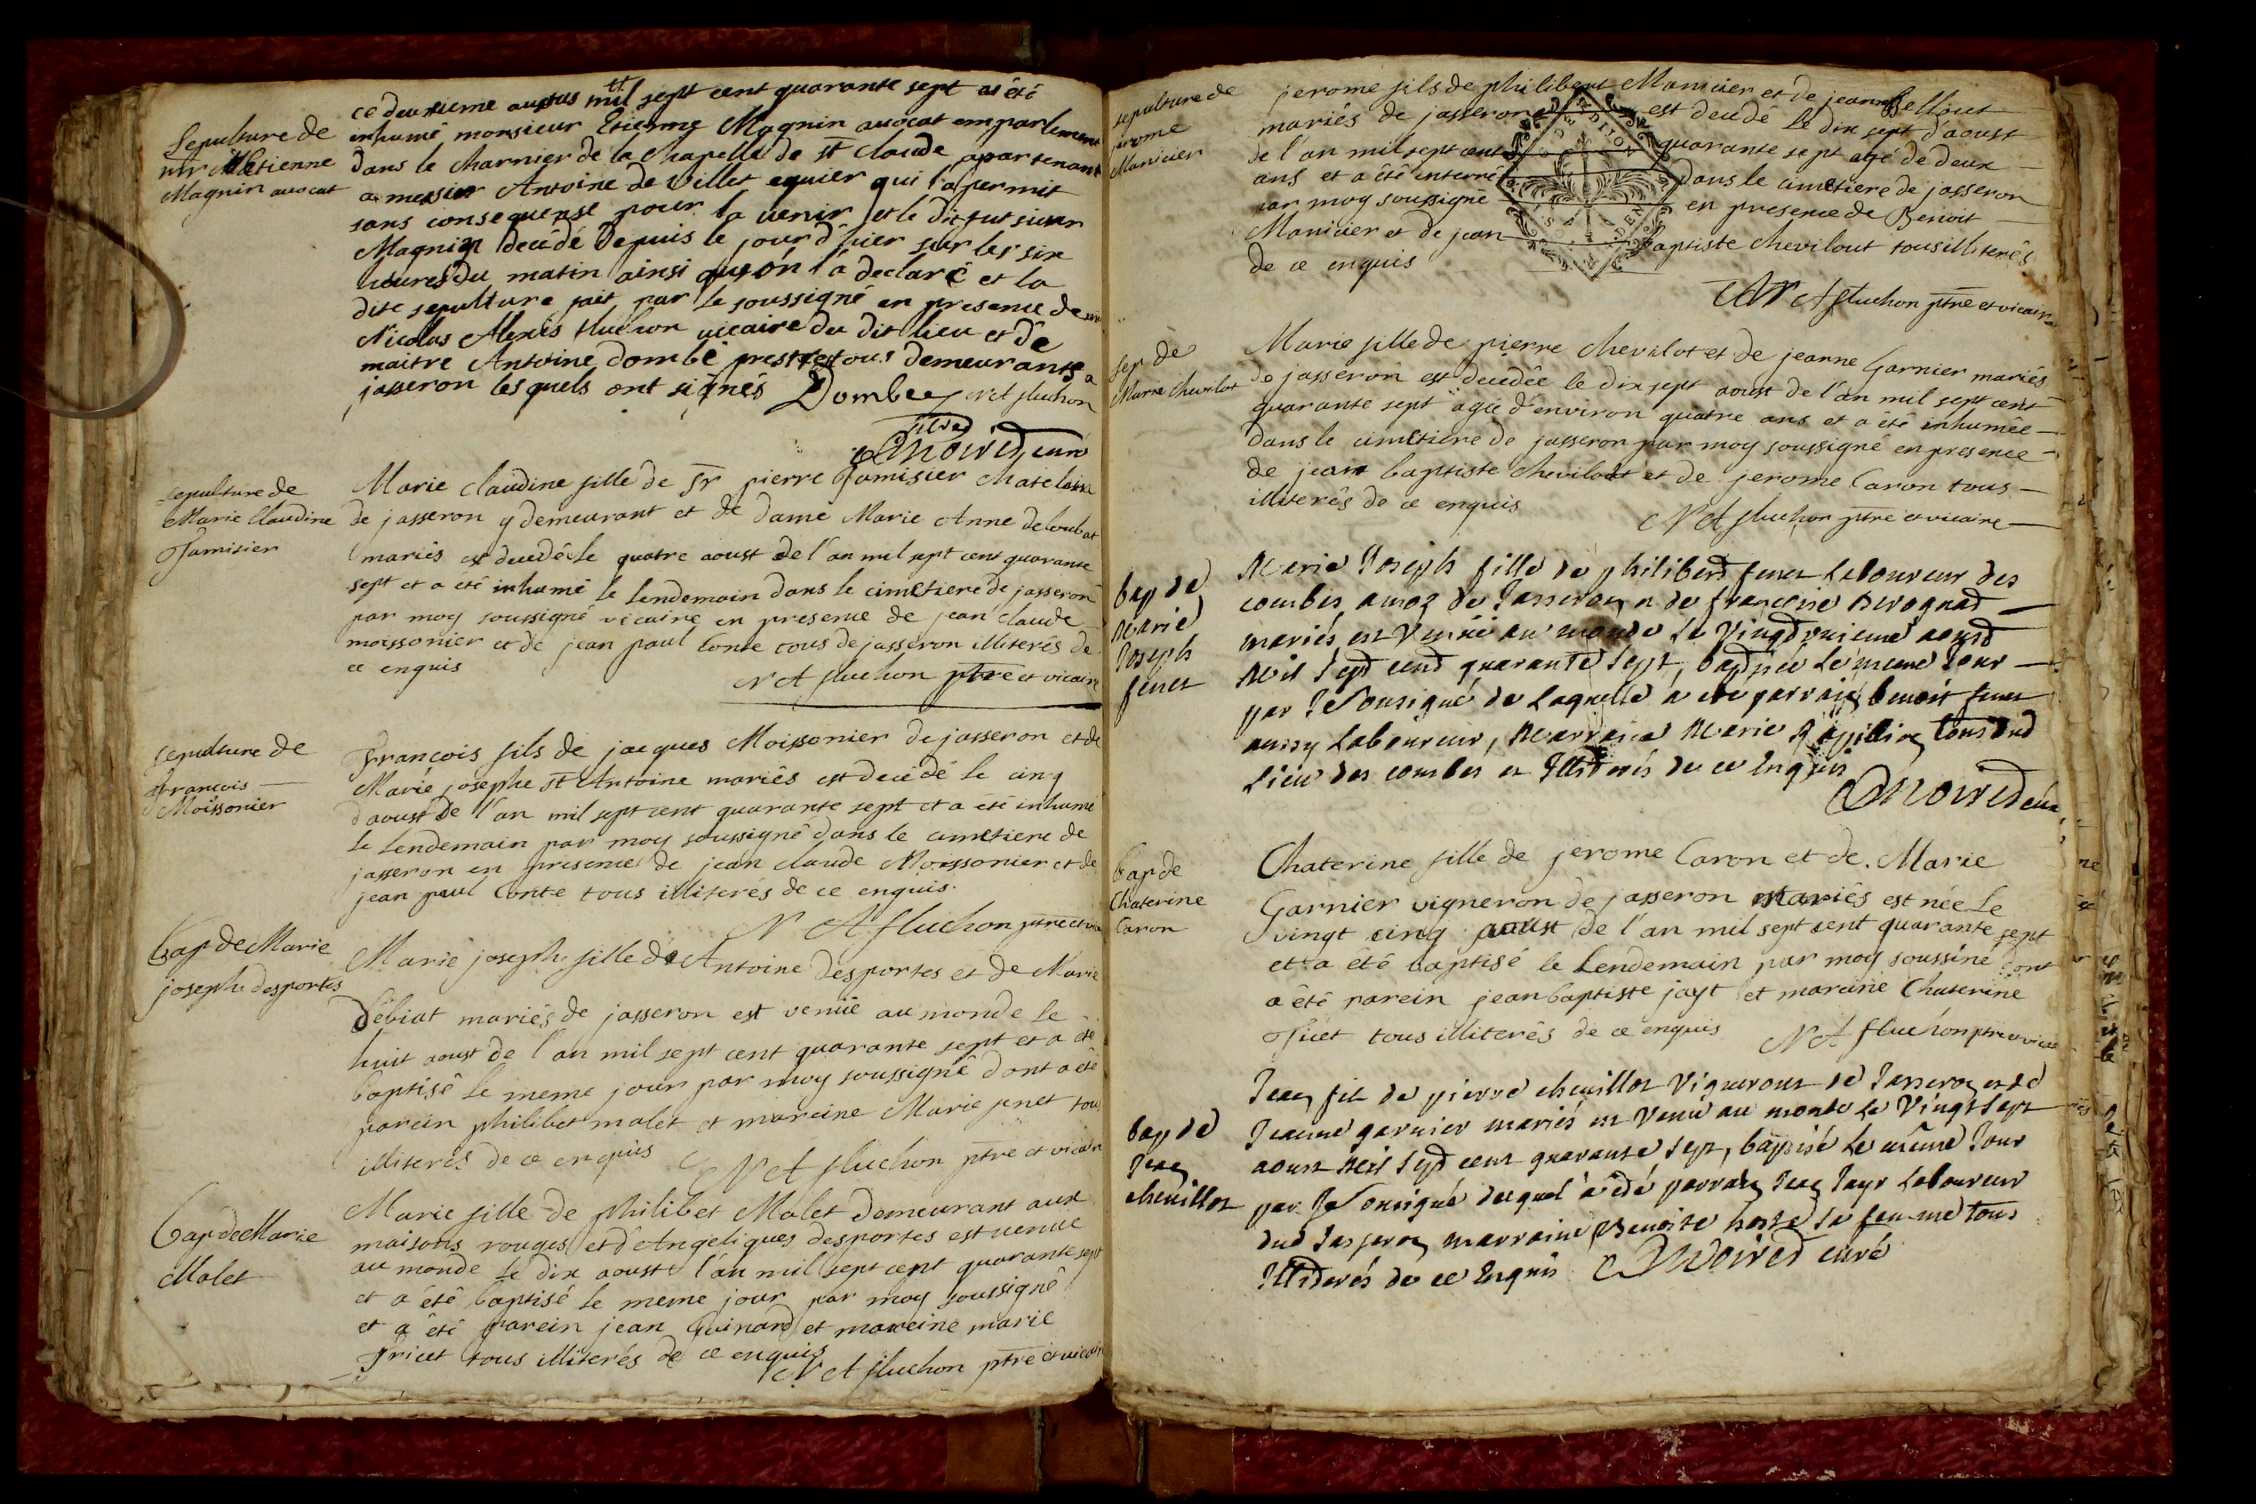 Sepulture de
mr Mr Etienne
Magnin avocat
ce deuxieme aoust mil sept cent quarante sept a été
inhumé monsieur Etienne Magnin avocat em parlement
dans le charnier de la chapelle de st Claude apartenant
a messier Antoine de Villet equier qui l'a permit
sans consequense pour la venir et le dit fut sieur
Magnin decédé depuis le jour d'hier sur les six
heures du matin ainsi qu'on l'a declaré et la
dite sepulture fait par le soussigné en presence de
Nicolas Alexis fluchon vicaire du dit lieu et de
maitre Antoine dombé tous demeurants a
jasseron lesquels ont signés Dombey NA fluchon
ptre
Noired curé
sepulture de
Marie Claudine
Jamisier
Marie Claudine fille de sr pierre Jamisier chatelain
de jasseron y demeurant et de dame Marie Anne deloubat
mariés est decedée le quatre aoust de l'an mil sept cent quarante
sept et a eté inhumé le lendemain dans le cimetiere de jasseron
par moy soussigné vicaire en presence de jean claude
moissonier et de jean paul Conte tous de jasseron illiterés de
ce enquis
NA fluchon ptre et vicaire
sepulture de
francois
Moissonier
François fils de jacques Moissonier de jasseron et de
Marie josephe st Antoine mariés est decédé le cinq
d'aoust de l'an mil sept cent quarante sept et a été inhumé
le lendemain par moy soussigné dans le cimetiere de
jasseron en presence de jean claude Moissonier et de
jean paul Conte tous illiterés de ce enquis.
N A fluchon ptre et vic
bap de Marie
joseph desportes
Marie joseph fille de Antoine desportes et de Marie
débiat mariés de jasseron est venüe au monde le
huit aoust de l'an mil sept cent quarante sept et a été
baptisé le meme jour par moy soussigné dont a été
parein philibet malet et mareine Marie fenet tous
illiterés de ce enquis
NA fluchon ptre et vicaire
bap de Marie
Malet
Marie fille de philibet Malet demeurant aux
maisons rouges et d'Angeliques desportes est venue
au monde le dix aoust l'an mil sept cent quarante sept
et a eté baptisé le meme jour par moy soussigné
et a été parein jean Guinard et mareine marie
fricet tous illiterés de ce enquis
NA fluchon ptre et vicaire
sepulture de
jerome
Manicier
jerome fils de philibert Manicier et de jeanne
mariés de jasseron est decédé le dix sept d'aoust
de l'an mil sept cent quarante sept agé de deux
ans et a été interré dans le cimetiere de jasseron
par moy soussigné en presence de Benoit
Manicier et de jean baptiste chevilout tous illiterés
de ce enquis
NA fluchon ptre et vicaire
sep de
Marie Chevilot
Marie fille de pierre chevilot et de jeanne Garnier mariés
de jasseron est decedée le dix sept aoust de l'an mil sept cent
quarante sept agée d'environ quatre ans et a été inhumée
dans le cimetiere de jasseron par moy soussigné en presence
de jean baptiste chevilout et de jerome Caron tous
illiterés de ce enquis
NA fluchon ptre et vicaire
bap de
Marie
Joseph
fenet
Marie Joseph fille de philiberd fenet Laboureur des
combes auroz de Jasseron et de francoise
mariés est Venüe au monde Le Vingd unieme aousd
Mil Sepd cend quarante Sept, badpisée Le meme Jour
par Je Sousigné de Laquelle a eté parrain benoit fenet
aussy Laboureur, Marraine Marie tous dud
Lieu des combes et Illiderés de ce Enquis
Noired curé
bap de
Chaterine
Caron
Chaterine fille de jerome Caron et de Marie
Garnier vigneron de jasseron mariés est née le
vingt cinq aoust de l'an mil sept cent quarante sept
et a été baptisé le Lendemain par moy soussiné dont
a été parein jean baptiste jayt et mareine Chaterine
ficet tous illiterés de ce enquis
NA fluchon ptre et vicai
bap de
Jean
cheuillot
Jean fils de pierre cheuillot Vigneront de Jasseron et de
Jeanne garnier mariés est Venu au monde Le Vingt Sept
aoust Mil Sepd cent quarante Sept, baptisé Le même Jour
par Je Sousigné duquel a êdé parrain Jean Jayr Laboureur
dud Jasseron marraine Benoite hoste Sa femme tous
Illiderés de ce Enquis
Noired curé